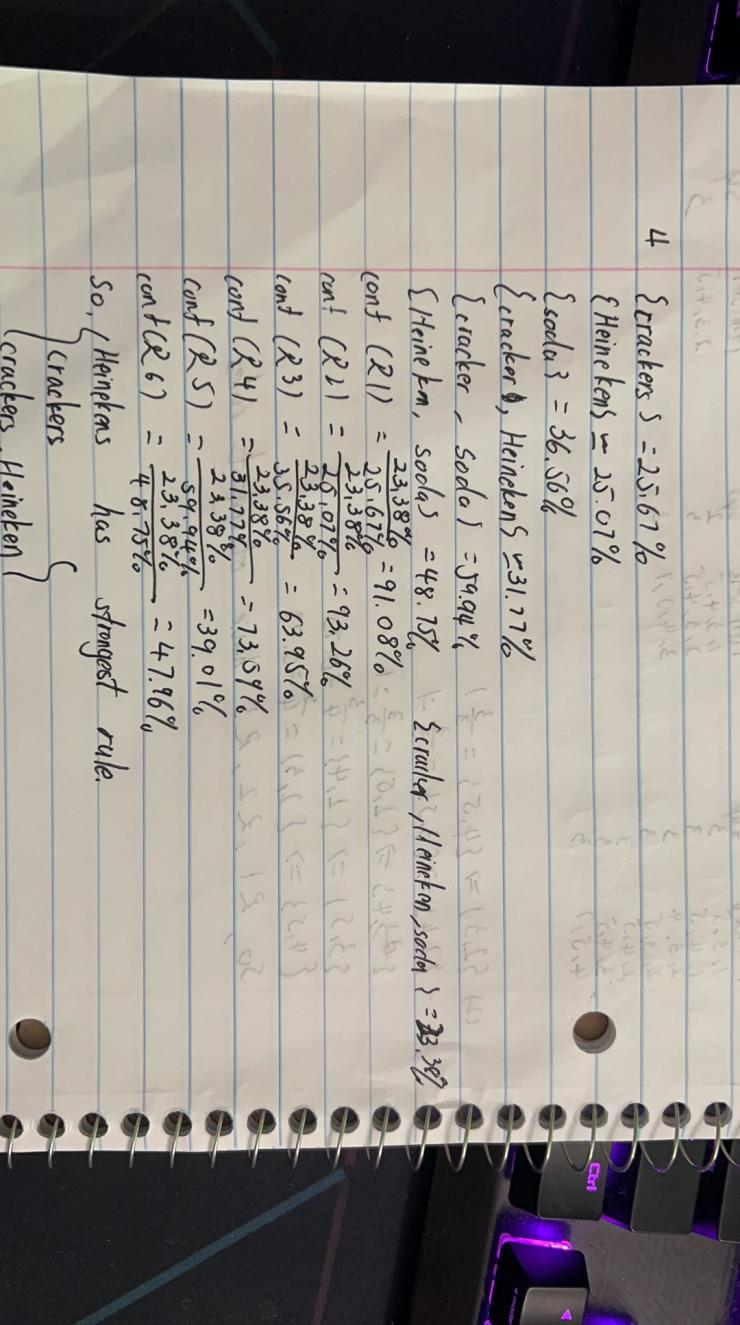 4 {crackers} = 25.67%
{Heineken} = 25.07%
{soda} = 36.56%
{cracker, Heineken} = 31.77%
{cracker, soda} = 59.94%
{Heineken, soda} = 48.75% {cracker, Heineken, soda} = 23.38%
conf (R1) = 23.38% / 25.67% = 91.08%
conf (R2) = 23.38% / 25.07% = 93.26%
conf (R3) = 23.38% / 35.56% = 63.95%
conf (R4) = 23.38% / 31.77% = 73.59%
conf (R5) = 23.38% / 59.94% = 39.01%
conf (R6) = 23.38% / 48.75% = 47.96%
So, {Heinekens has strongest rule.
{crackers {
{crackers, Heineken}
Ctrl